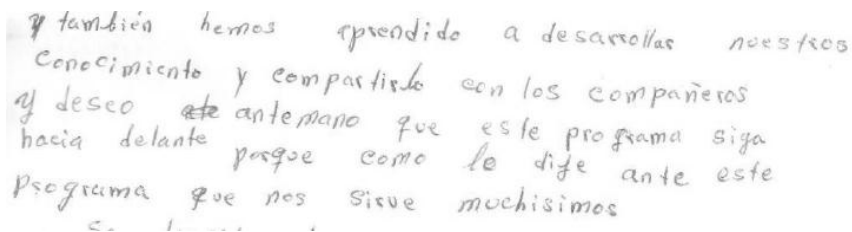 y también hemos aprendido a desarrollar nuestros
conocimiento y compartirlo con los compañeros
y deseo antemano que este programa siga
hacia delante porque como le dije ante este
programa que nos sirve muchisimos